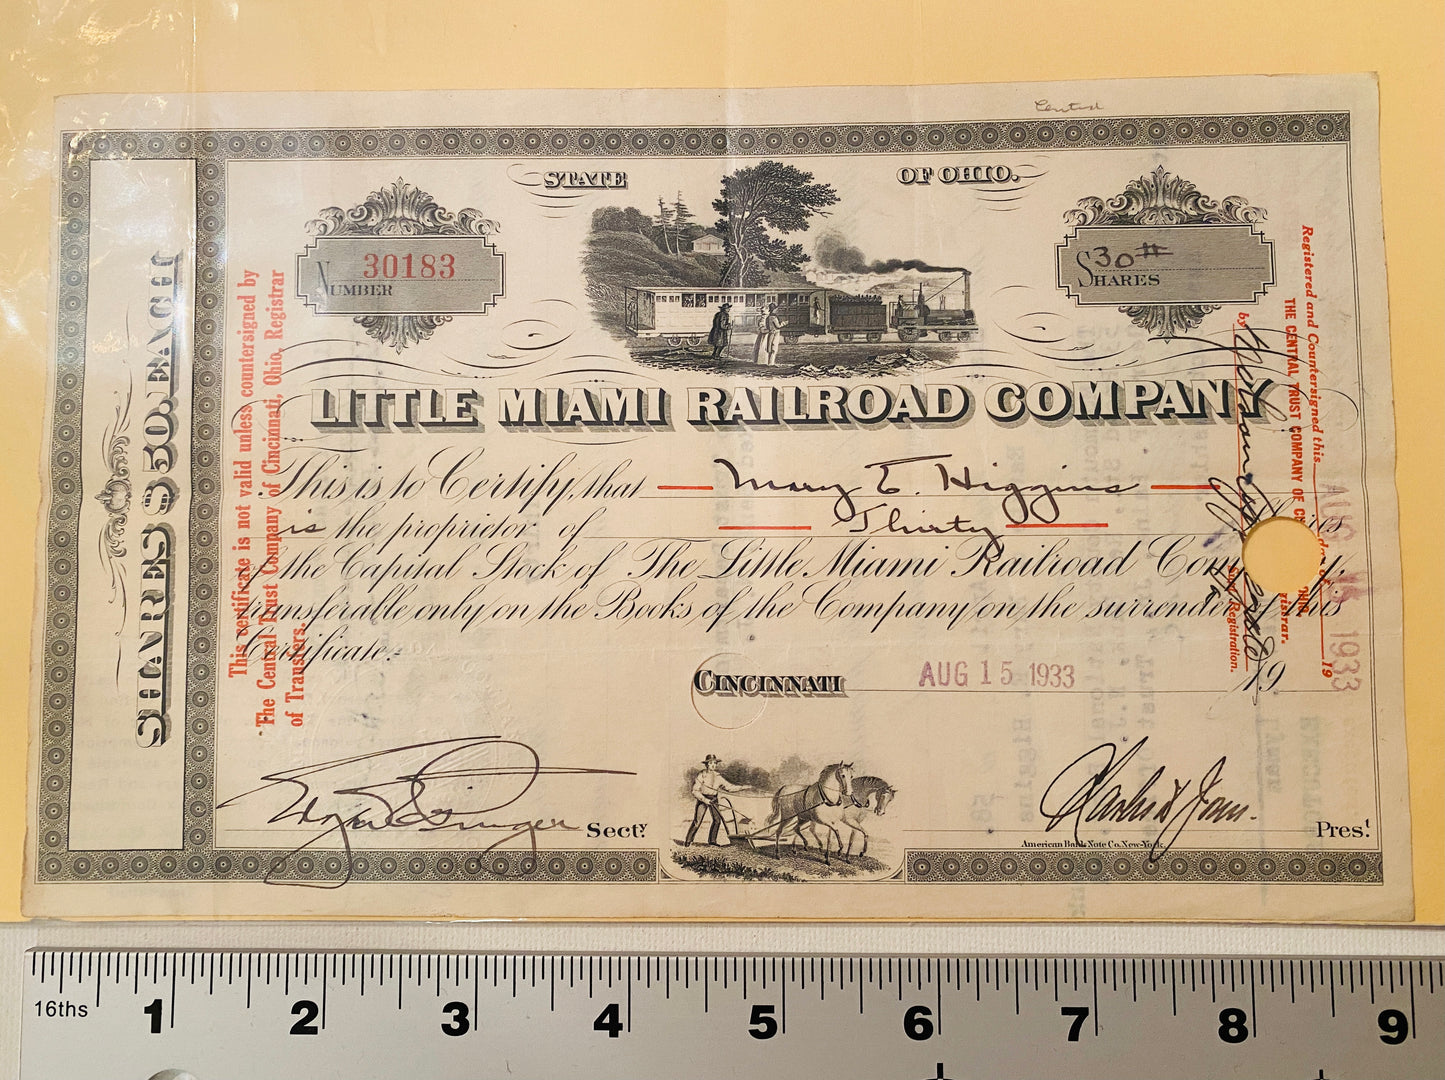 Central
STATE OF OHIO.
NUMBER 30183
SHARES 30
SHARES $50. EACH
This certificate is not valid unless countersigned by
The Central Trust Company of Cincinnati, Ohio, Registrar
of Transfers.
LITTLE MIAMI RAILROAD COMPANY
This is to Certify, that Mary E. Higgins
is the proprietor of Thirty Shares
of the Capital Stock of The Little Miami Railroad Company,
transferable only on the Books of the Company on the surrender of this
Certificate.
CINCINNATI AUG 15 1933 19
Secty.
Prest.
American Bank Note Co. New-York.
Registered and Countersigned this
THE CENTRAL TRUST COMPANY OF
by
Registration.
19
AUG 1933
16ths
1 2 3 4 5 6 7 8 9